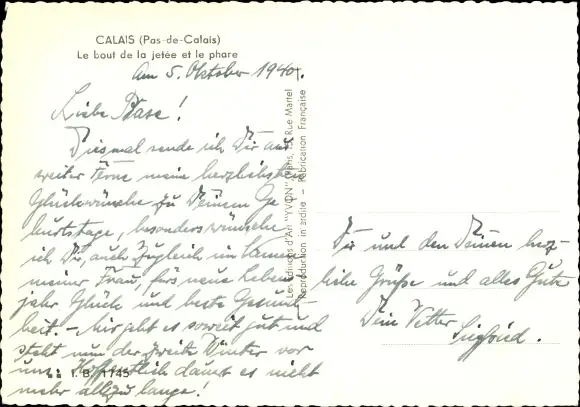 CALAIS (Pas-de-Calais)
Le bout de la jetée et le phare
Am 5. Oktober 1940.
Liebe Base!
Diesmal sende ich Dir aus
weiter Ferne meine herzlichsten
Glückwünsche zu Deinem Ge
burtstage, besonders wünsche
ich Dir, auch zugleich im Namen
meiner Frau, fürs neue Lebens
jahr Glück und beste Gesund-
heit. - Mir geht es soweit gut und
steht nun der zweite Winter vor
uns. Hoffentlich dauert es nicht
mehr allzu lange!
I. B. 1745
Les Editions d'Art "YVON" Paris, 15, Rue Martel
Reproduction interdite - Fabrication Française
Dir und den Deinen herz-
liche Grüße und alles Gute
Dein Vetter
Siegfried.